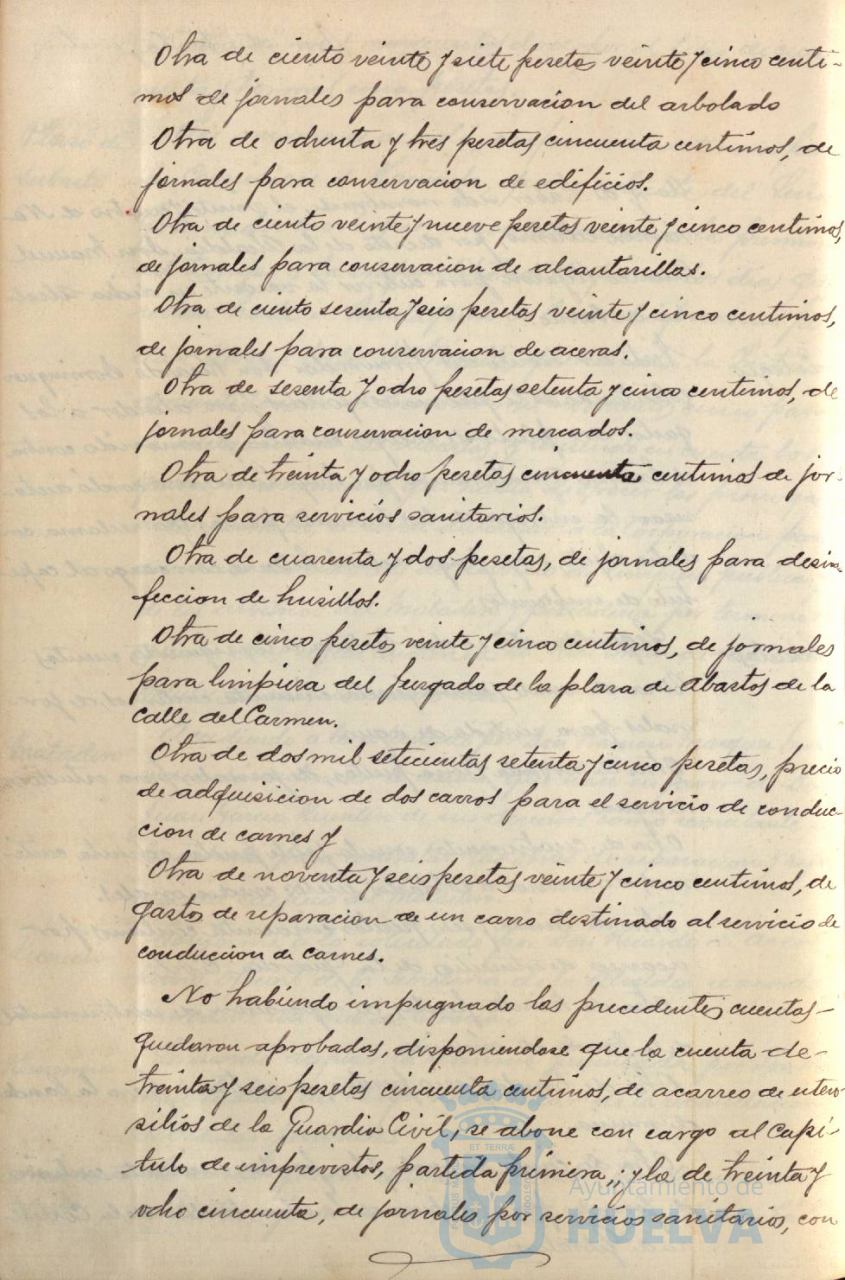 Otra de ciento veinte y siete pesetas veinte y cinco centi-
mos de jornales para conservacion del arbolado
Otra de ochenta y tres pesetas cincuenta centimos, de
jornales para conservacion de edificios.
Otra de ciento veinte y nueve pesetas veinte y cinco centimos,
de jornales para conservacion de alcantarillas.
Otra de ciento sesenta y seis pesetas veinte y cinco centimos,
de jornales para conservacion de aceras.
Otra de sesenta y ocho pesetas setenta y cinco centimos, de
jornales para conservacion de mercados.
Otra de treinta y ocho pesetas cincuenta centimos de jor-
nales para servicios sanitarios.
Otra de cuarenta y dos pesetas, de jornales para desin-
feccion de husillos.
Otra de cinco pesetas veinte y cinco centimos, de jornales
para limpieza del Juzgado de la plaza de Abastos de la
Calle del Carmen.
Otra de dos mil setecientas setenta y cinco pesetas, precio
de adquisicion de dos carros para el servicio de conduc-
cion de carnes y
Otra de noventa y seis pesetas veinte y cinco centimos, de
gasto de reparacion de un carro destinado al servicio de
conduccion de carnes.
No habiendo impugnado las precedentes cuentas-
quedaron aprobadas, disponiendose que la cuenta de-
treinta y seis pesetas cincuenta centimos, de acarreo de uten-
silios de la Guardia Civil, se abone con cargo al Capi-
tulo de imprevistos, partida primera,; y la de treinta y
ocho cincuenta, de jornales por servicios sanitarios, con
ET TERRÆ
Ayuntamiento de
HUELVA